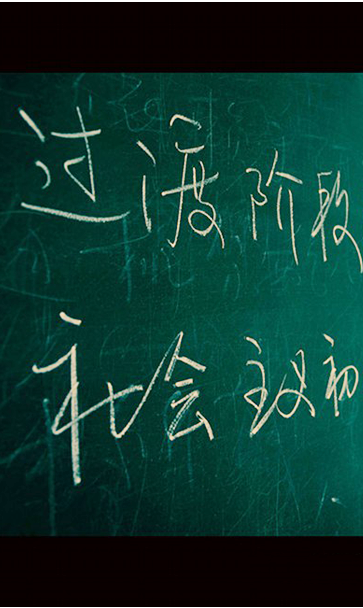 过渡阶段
社会主义初